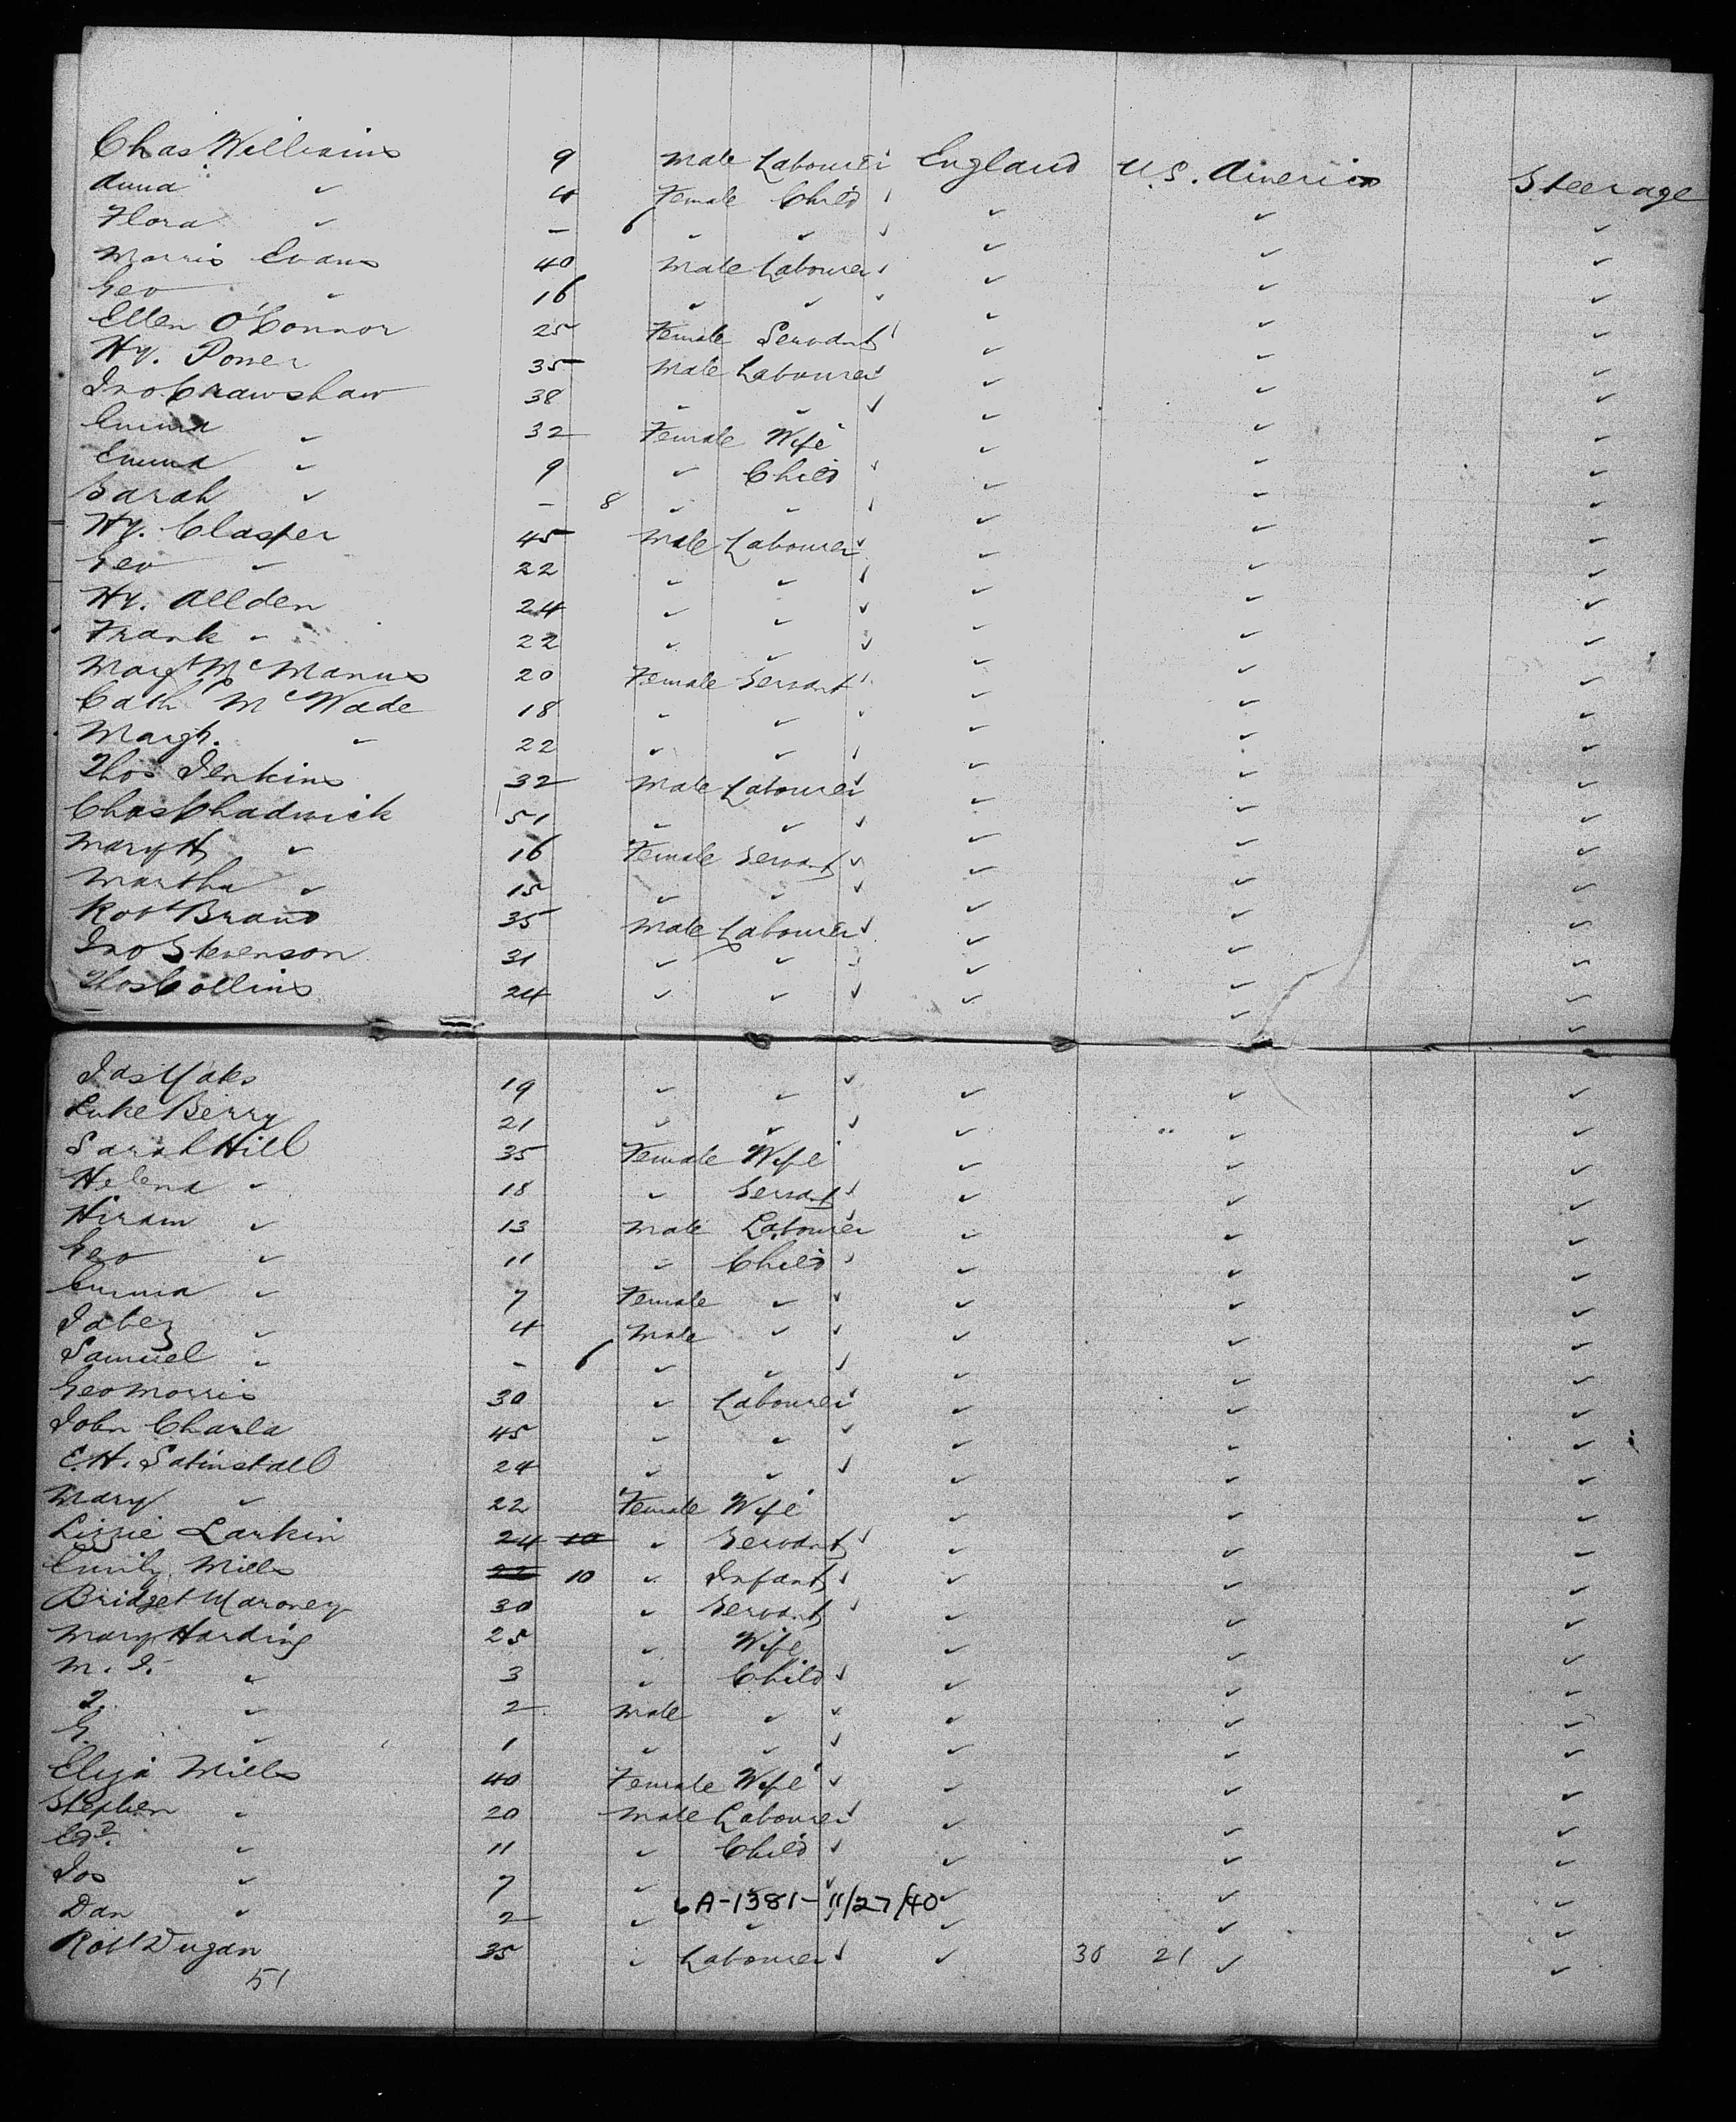 Chas Williams 9 Male Labourer England U.S. America Steerage
Anna " 4 Female Child " " "
Flora " - 6 " " " " "
Morris Evans 40 Male Labourer " " "
Geo " 16 " " " " "
Ellen O'Connor 25 Female Servant " " "
Hy. Power 35 Male Labourer " " "
Jno Crawshaw 38 " " " " "
Emma " 32 Female Wife " " "
Emma " 9 " Child " " "
Sarah " - 8 " " " " "
Hy. Clasper 45 Male Labourer " " "
Geo " 22 " " " " "
Hy. Allden 24 " " " " "
Frank " 22 " " " " "
Margt McManus 20 Female Servant " " "
Cath McWade 18 " " " " "
Margt. " 22 " " " " "
Thos Jenkins 32 Male Labourer " " "
Chas Chadwick 51 " " " " "
Mary H " 16 Female Servant " " "
Martha " 15 " " " " "
Robt Brand 35 Male Labourer " " "
Jno Stevenson 31 " " " " "
Thos Collins 24 " " " " "
Jas Yates 19 " " " " "
Luke Berry 21 " " " " "
Sarah Hill 35 Female Wife " " "
Helena " 18 " Servant " " "
Hiram " 13 Male Labourer " " "
Geo " 11 " Child " " "
Emma " 7 Female " " " "
Jabez " 4 Male " " " "
Samuel " - 6 " " " " "
Geo Morris 30 " Labourer " " "
John Charla 45 " " " " "
E.H. Satinstall 24 " " " " "
Mary " 22 Female Wife " " "
Lizzie Larkin 24 10 " Servant " " "
Emily Mills 22 10 " Infant " " "
Bridget Maroney 30 " Servant " " "
Mary Harding 25 " Wife " " "
M. J. " 3 " Child " " "
J. " 2 Male " " " "
G. " 1 " " " " "
Eliza Mills 40 Female Wife " " "
Stephen " 20 Male Labourer " " "
Edd. " 11 " Child " " "
Jos " 7 " " " " "
6A-1381-11/27/40
Dan " 2 " " " " "
Robt Dugan 35 " Labourer " 30 21 " "
51